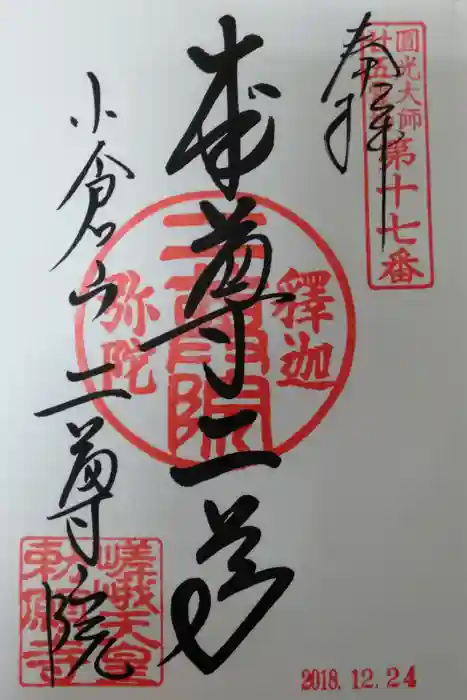 圓光大師
廿五霊場
第十七番
奉拝
本尊二尊
釋迦
二尊院
弥陀
小倉山二尊院
嵯峨天皇
勅願寺
2018.12.24